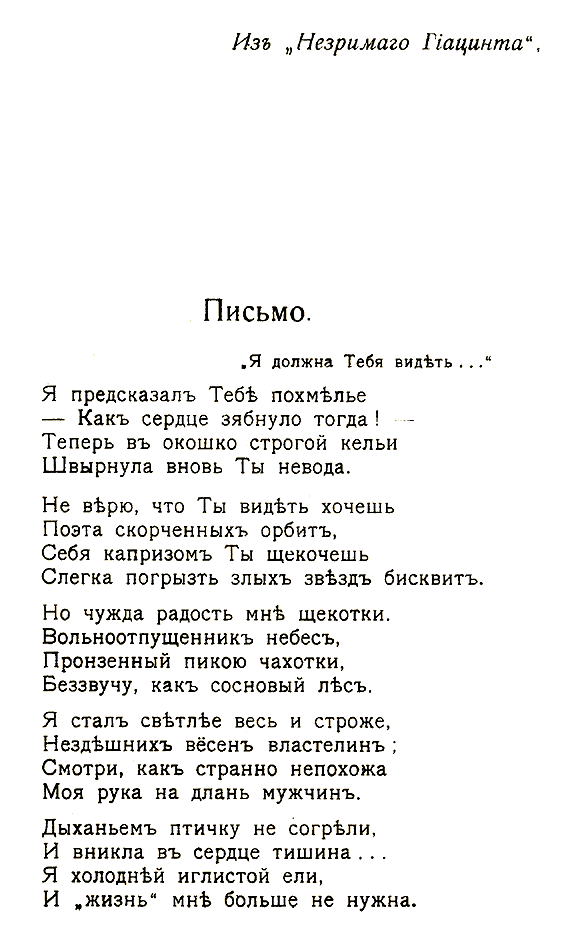 Изъ „Незримаго Гіацинта“.
Письмо.
„Я должна Тебя видѣть ...“
Я предсказалъ Тебѣ похмѣлье
— Какъ сердце зябнуло тогда! —
Теперь въ окошко строгой кельи
Швырнула вновь Ты невода.
Не вѣрю, что Ты видѣть хочешь
Поэта скорченныхъ орбитъ,
Себя капризомъ Ты щекочешь
Слегка погрызть злыхъ звѣздъ бисквитъ.
Но чужда радость мнѣ щекотки.
Вольноотпущенникъ небесъ,
Пронзенный пикою чахотки,
Беззвучу, какъ сосновый лѣсъ.
Я сталъ свѣтлѣе весь и строже,
Нездѣшнихъ вёсенъ властелинъ;
Смотри, какъ странно непохожа
Моя рука на длань мужчинъ.
Дыханьемъ птичку не согрѣли,
И вникла въ сердце тишина ...
Я холоднѣй иглистой ели,
И „жизнь“ мнѣ больше не нужна.